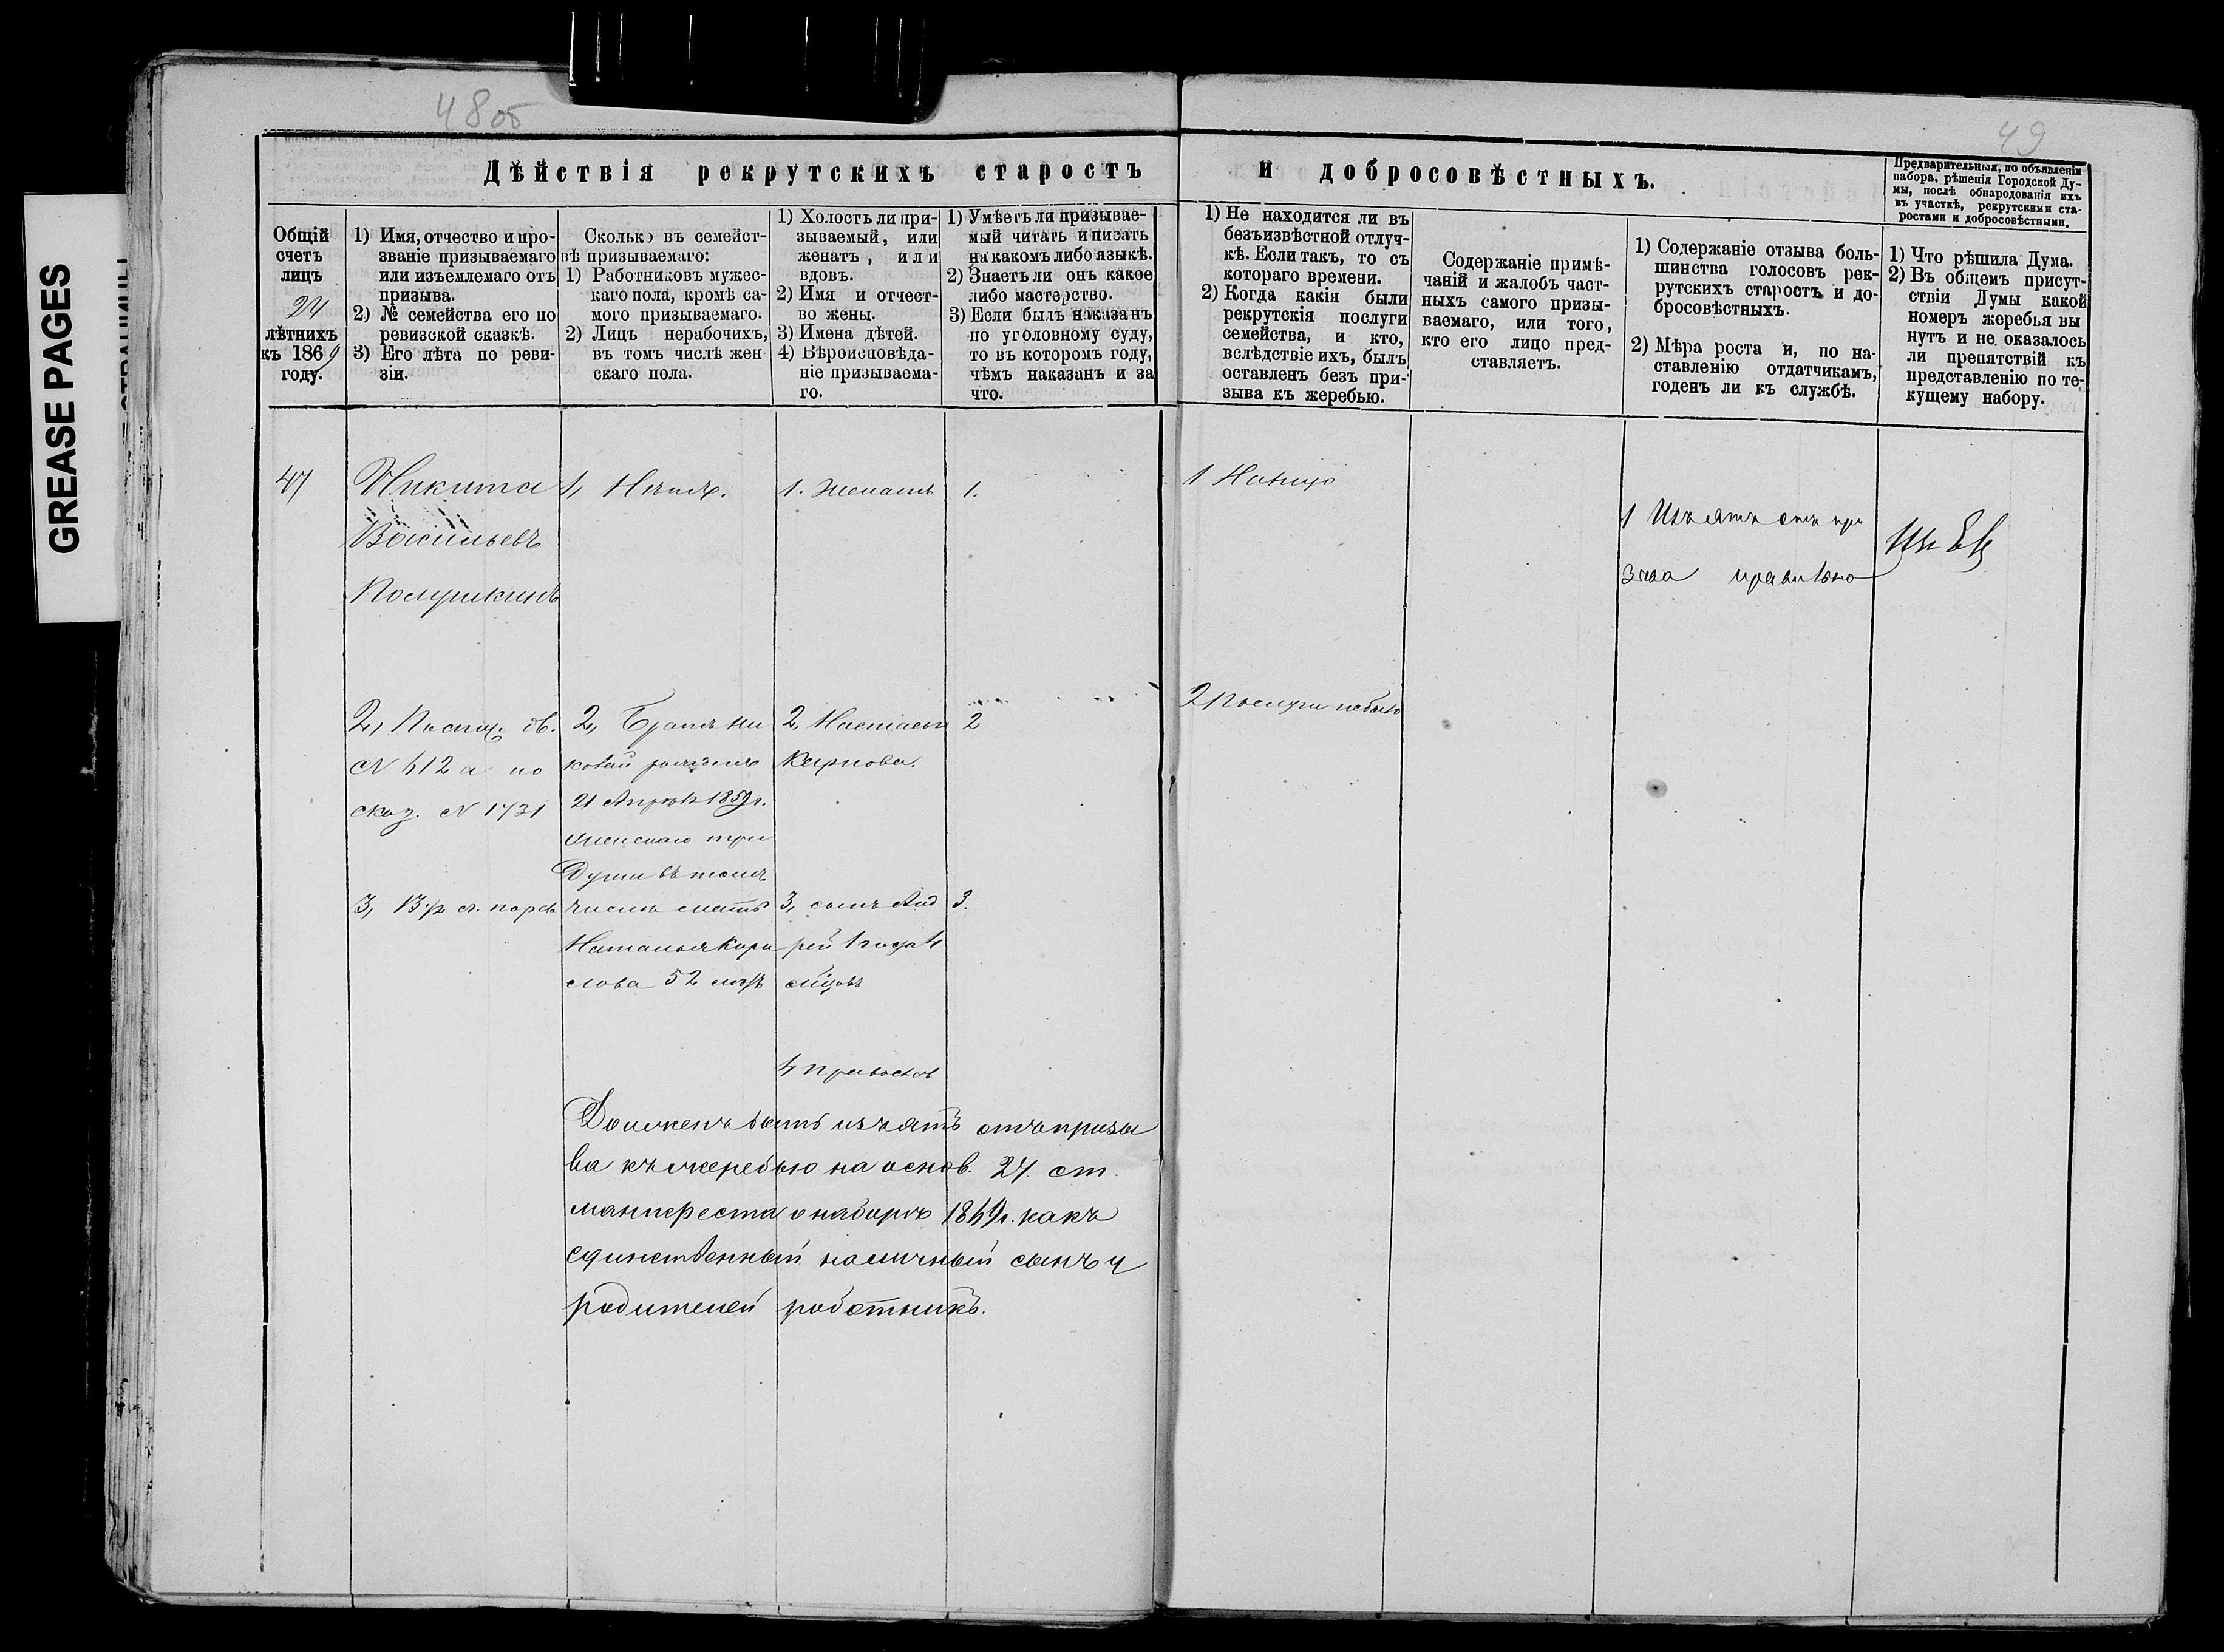 48об
49
GREASE PAGES
Дѣйствія рекрутскихъ старостъ
и добросовѣстныхъ.
Предварительныя, по объявленіи
набора, рѣшенія Городской Ду-
мы, послѣ обнародованія ихъ
въ участкѣ, рекрутскими ста-
ростами и добросовѣстными.
Общій
счетъ
лицъ
24
лѣтнихъ
къ 1869
году.
1) Имя, отчество и про-
званіе призываемаго
или изъемлемаго отъ
призыва.
2) № семейства его по
ревизской сказкѣ.
3) Его лѣта по реви-
зіи.
Сколько въ семейст-
вѣ призываемаго:
1) Работниковъ мужес-
каго пола, кромѣ са-
мого призываемаго.
2) Лицъ нерабочихъ,
въ томъ числѣ жен
скаго пола.
1) Холостъ ли при-
зываемый, или
женатъ, или
вдовъ.
2) Имя и отчест-
во жены.
3) Имена дѣтей.
4) Вѣроисповѣда-
ніе призываема-
го.
1) Умѣетъ ли призывае-
мый читать и писать
на какомъ либо языкѣ.
2) Знаетъ ли онъ какое
либо мастерство.
3) Если былъ наказанъ
по уголовному суду,
то въ которомъ году,
чѣмъ наказанъ и за
что.
1) Не находится ли въ
безъизвѣстной отлуч-
кѣ. Если такъ, то съ
котораго времени.
2) Когда какія были
рекрутскія послуги
семейства, и кто,
вслѣдствіе ихъ, былъ
оставленъ безъ при-
зыва къ жеребью.
Содержаніе примѣ-
чаній и жалобъ част-
ныхъ самого призы-
ваемаго, или того,
кто его лицо пред-
ставляетъ.
1) Содержаніе отзыва боль-
шинства голосовъ рек-
рутскихъ старостъ и до-
бросовѣстныхъ.
2) Мѣра роста и, по на-
ставленію отдатчикамъ,
годенъ ли къ службѣ.
1) Что рѣшила Дума.
2) Въ общемъ присут-
ствіи Думы какой
номеръ жеребья вы
нутъ и не оказалось
ли препятствій къ
представленію по те-
кущему набору.
47
Никита
Васильевъ
Полушкинъ
2, № 612 а по
сказ. № 1731
3,
1, Нѣтъ.
2, Братъ Ни
колай родился
21 Апрѣля 1859 г.
женскаго три
Души въ томъ
числѣ мать
Наталья Кари
лова 52 лѣтъ
1. женатъ
2, Настасья
Карпова.
3, сынъ Анд
рей 1 года и
4 правосл
1.
2
3.
Долженъ быть изъятъ отъ призы
ва къ жеребью на основ. 27 ст.
манифеста о наборѣ 1869 г. какъ
единственный наличный сынъ у
родителей работникъ.
1 Налицо
2 Послуги не было
1 Изъятъ отъ при
зыва правильно